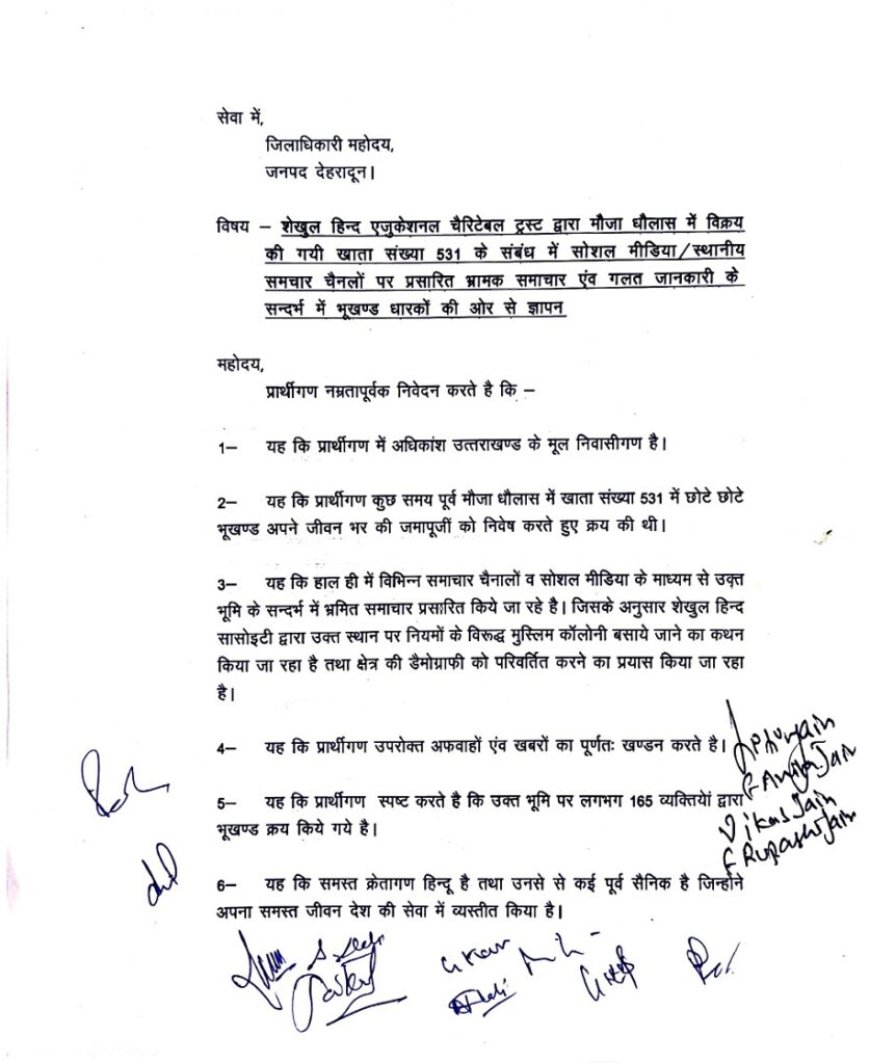 सेवा में,
जिलाधिकारी महोदय,
जनपद देहरादून।
विषय – शेखुल हिन्द एजुकेशनल चैरिटेबल ट्रस्ट द्वारा मौजा धौलास में विक्रय
की गयी खाता संख्या 531 के संबंध में सोशल मीडिया/स्थानीय
समचार चैनलों पर प्रसारित भ्रामक समाचार एंव गलत जानकारी के
सन्दर्भ में भूखण्ड धारकों की ओर से ज्ञापन
महोदय,
प्रार्थीगण नम्रतापूर्वक निवेदन करते है कि –
1– यह कि प्रार्थीगण में अधिकांश उत्तराखण्ड के मूल निवासीगण है।
2– यह कि प्रार्थीगण कुछ समय पूर्व मौजा धौलास में खाता संख्या 531 में छोटे छोटे
भूखण्ड अपने जीवन भर की जमापूजीं को निवेष करते हुए क्रय की थी।
3– यह कि हाल ही में विभिन्न समाचार चैनालों व सोशल मीडिया के माध्यम से उक्त
भूमि के सन्दर्भ में भ्रमित समाचार प्रसारित किये जा रहे है। जिसके अनुसार शेखुल हिन्द
सासोइटी द्वारा उक्त स्थान पर नियमों के विरूद्ध मुस्लिम कॉलोनी बसाये जाने का कथन
किया जा रहा है तथा क्षेत्र की डैमोग्राफी को परिवर्तित करने का प्रयास किया जा रहा
है।
4– यह कि प्रार्थीगण उपरोक्त अफवाहों एंव खबरों का पूर्णतः खण्डन करते है।
Jain
Jain
5– यह कि प्रार्थीगण स्पष्ट करते है कि उक्त भूमि पर लगभग 165 व्यक्तियेां द्वारा
भूखण्ड क्रय किये गये है।
Vikas Jain
Jain
6– यह कि समस्त क्रेतागण हिन्दू है तथा उनसे से कई पूर्व सैनिक है जिन्होंने
अपना समस्त जीवन देश की सेवा में व्यस्तीत किया है।